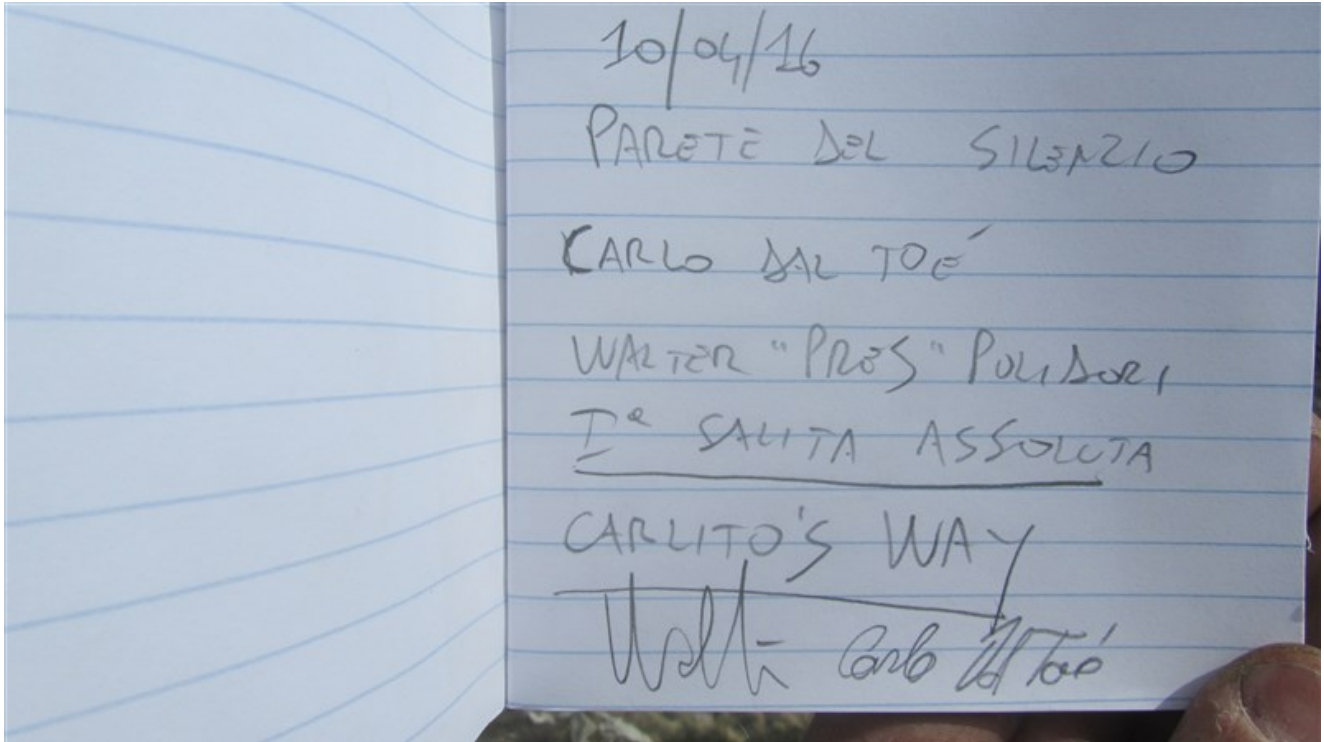 10/04/16
PARETE DEL SILENZIO
CARLO DAL TOÉ
WALTER "PRES" POLIDORI
Iª SALITA ASSOLUTA
CARLITO'S WAY
Walter Carlo Dal Toé